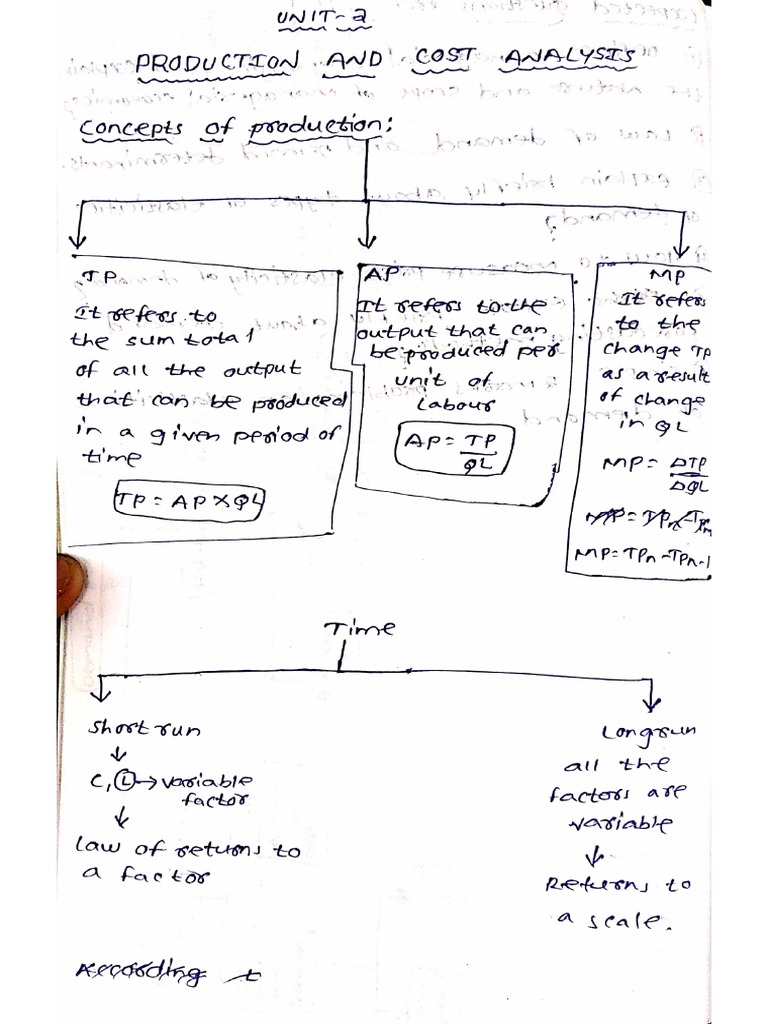 UNIT-2
PRODUCTION AND COST ANALYSIS
Concepts of production:
TP
It refers to
the sum total
of all the output
that can be produced
in a given period of
time
TP = AP X QL
AP
It refers to the
output that can
be produced per
unit of
Labour
AP = TP
QL
MP
It refers
to the
change TP
as a result
of change
in QL
MP = ΔTP
ΔQL
MP = TPn - TPn-1
Time
Short run
C, L → variable
factor
Law of returns to
a factor
Longrun
all the
factors are
variable
Returns to
a scale.
According t